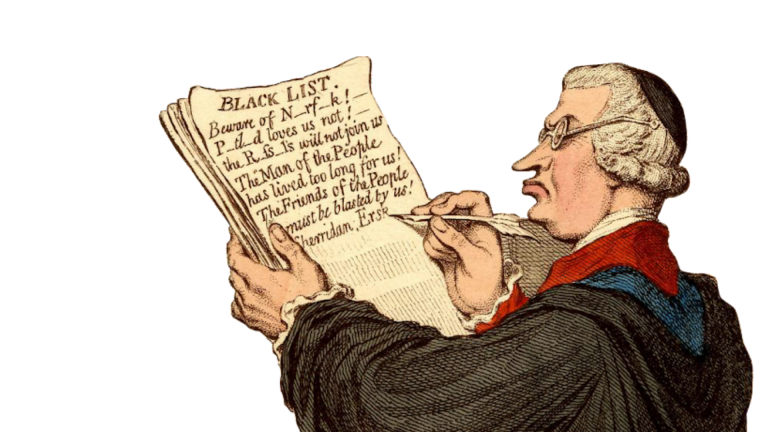 BLACK LIST.
Beware of N_rf_k!
P_tl_d loves us not!
the R_fs_l's will not join us
The Man of the People
has lived too long for us!
The Friends of the People
must be blasted by us!
Sherridan, Ersk